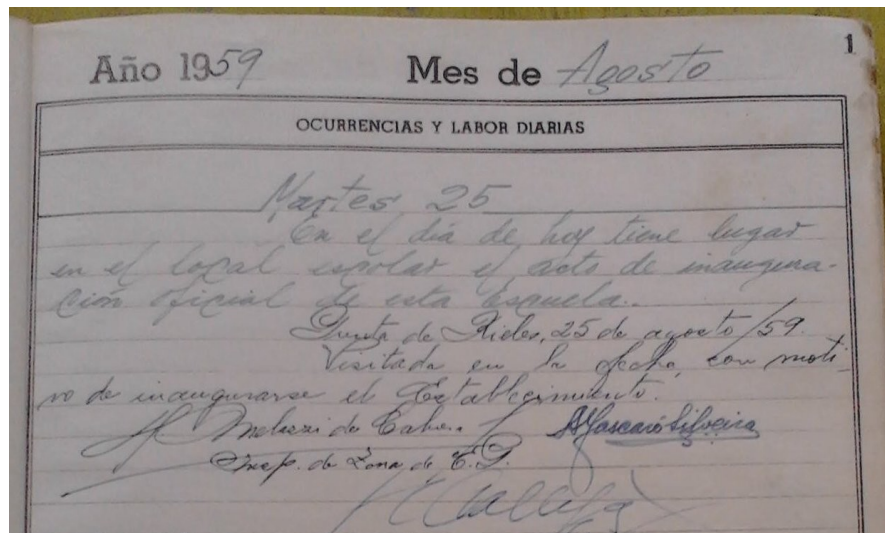 1
Año 1959 Mes de Agosto
OCURRENCIAS Y LABOR DIARIAS
Martes 25
En el día de hoy tiene lugar
en el local escolar el acto de inaugura-
ción oficial de esta Escuela.
Punta de Rieles, 25 de agosto/59.
Visitada en la fecha, con moti-
vo de inaugurarse el Establecimiento.
de Cabrera Silveira
Insp. de Zona de E.P.